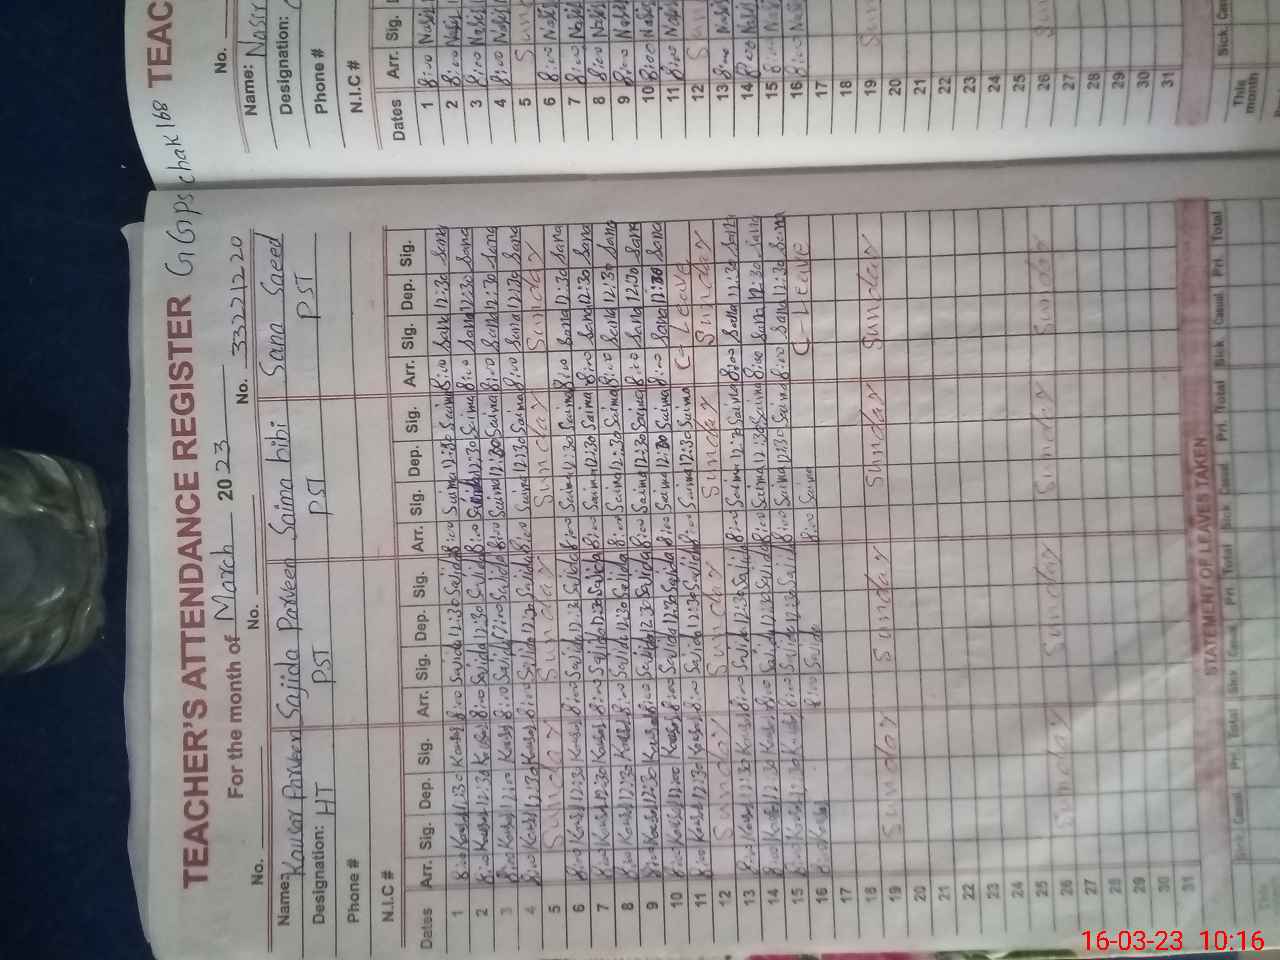 TEACHER'S ATTENDANCE REGISTER GGPS chak 168
For the month of March 2023
No. No. No. No. 33221220
Name: Kausar Parveen Sajida Parveen Saima bibi Sana Saeed
Designation: HT PST PST PST
Phone #
N.I.C #
Dates Arr. Sig. Dep. Sig. Arr. Sig. Dep. Sig. Arr. Sig. Dep. Sig. Arr. Sig. Dep. Sig.
1 8:00 Kausar 12:30 Kausar 8:00 Sajida 12:30 Sajida 8:00 Saima 12:30 Saima 8:00 Sana 12:30 Sana
2 8:00 Kausar 12:30 Kausar 8:00 Sajida 12:30 Sajida 8:00 12:30 Saima 8:00 Sana 12:30 Sana
3 8:00 Kausar 12:00 Kausar 8:00 Sajida 12:00 Sajida 8:00 Saima 12:00 Saima 8:00 Sana 12:30 Sana
4 8:00 Kausar 12:30 Kausar 8:00 Sajida 12:30 Sajida 8:00 Saima 12:30 Saima 8:00 Sana 12:30 Sana
5 Sunday Sunday Sunday Sunday
6 8:00 Kausar 12:30 Kausar 8:00 Sajida 12:30 Sajida 8:00 Saima 12:30 Saima 8:00 Sana 12:30 Sana
7 8:00 Kausar 12:30 Kausar 8:00 Sajida 12:30 Sajida 8:00 Saima 12:30 Saima 8:00 Sana 12:30 Sana
8 8:00 Kausar 12:30 Kausar 8:00 Sajida 12:30 Sajida 8:00 Saima 12:30 Saima 8:00 Sana 12:30 Sana
9 8:00 Kausar 12:30 Kausar 8:00 Sajida 12:30 Sajida 8:00 Saima 12:30 Saima 8:00 Sana 12:30 Sana
10 8:00 Kausar 12:00 Kausar 8:00 Sajida 12:30 Sajida 8:00 Saima 12:00 Saima 8:00 Sana 12:30 Sana
11 8:00 Kausar 12:30 Kausar 8:00 Sajida 12:30 Sajida 8:00 Saima 12:30 Saima C-Leave
12 Sunday Sunday Sunday Sunday
13 8:00 Kausar 12:30 Kausar 8:00 Sajida 12:30 Sajida 8:00 Saima 12:30 Saima 8:00 Sana 12:30 Sana
14 8:00 Kausar 12:30 Kausar 8:00 Sajida 12:30 Sajida 8:00 Saima 12:30 Saima 8:00 Sana 12:30 Sana
15 8:00 Kausar 12:30 Kausar 8:00 Sajida 12:30 Sajida 8:00 Saima 12:30 Saima 8:00 Sana 12:30 Sana
16 8:00 Kausar 8:00 Sajida 8:00 Saima C-Leave
17
18
19 Sunday Sunday Sunday Sunday
20
21
22
23
24
25
26 Sunday Sunday Sunday Sunday
27
28
29
30
31
STATEMENT OF LEAVES TAKEN
Sick Casual Pri. Total Sick Casual Pri. Total Sick Casual Pri. Total Sick Casual Pri. Total
TEAC
No.
Name: Nasir
Designation:
Phone #
N.I.C #
Dates Arr. Sig.
1 8:00
2 8:00
3 8:00
4 8:00
5
6 8:00
7 8:00
8 8:00
9 8:00
10 8:00
11 8:00
12
13
14 8:00
15 8:00
16 8:00
17
18
19
20
21
22
23
24
25
26
27
28
29
30
31
Sick
This month
16-03-23 10:16